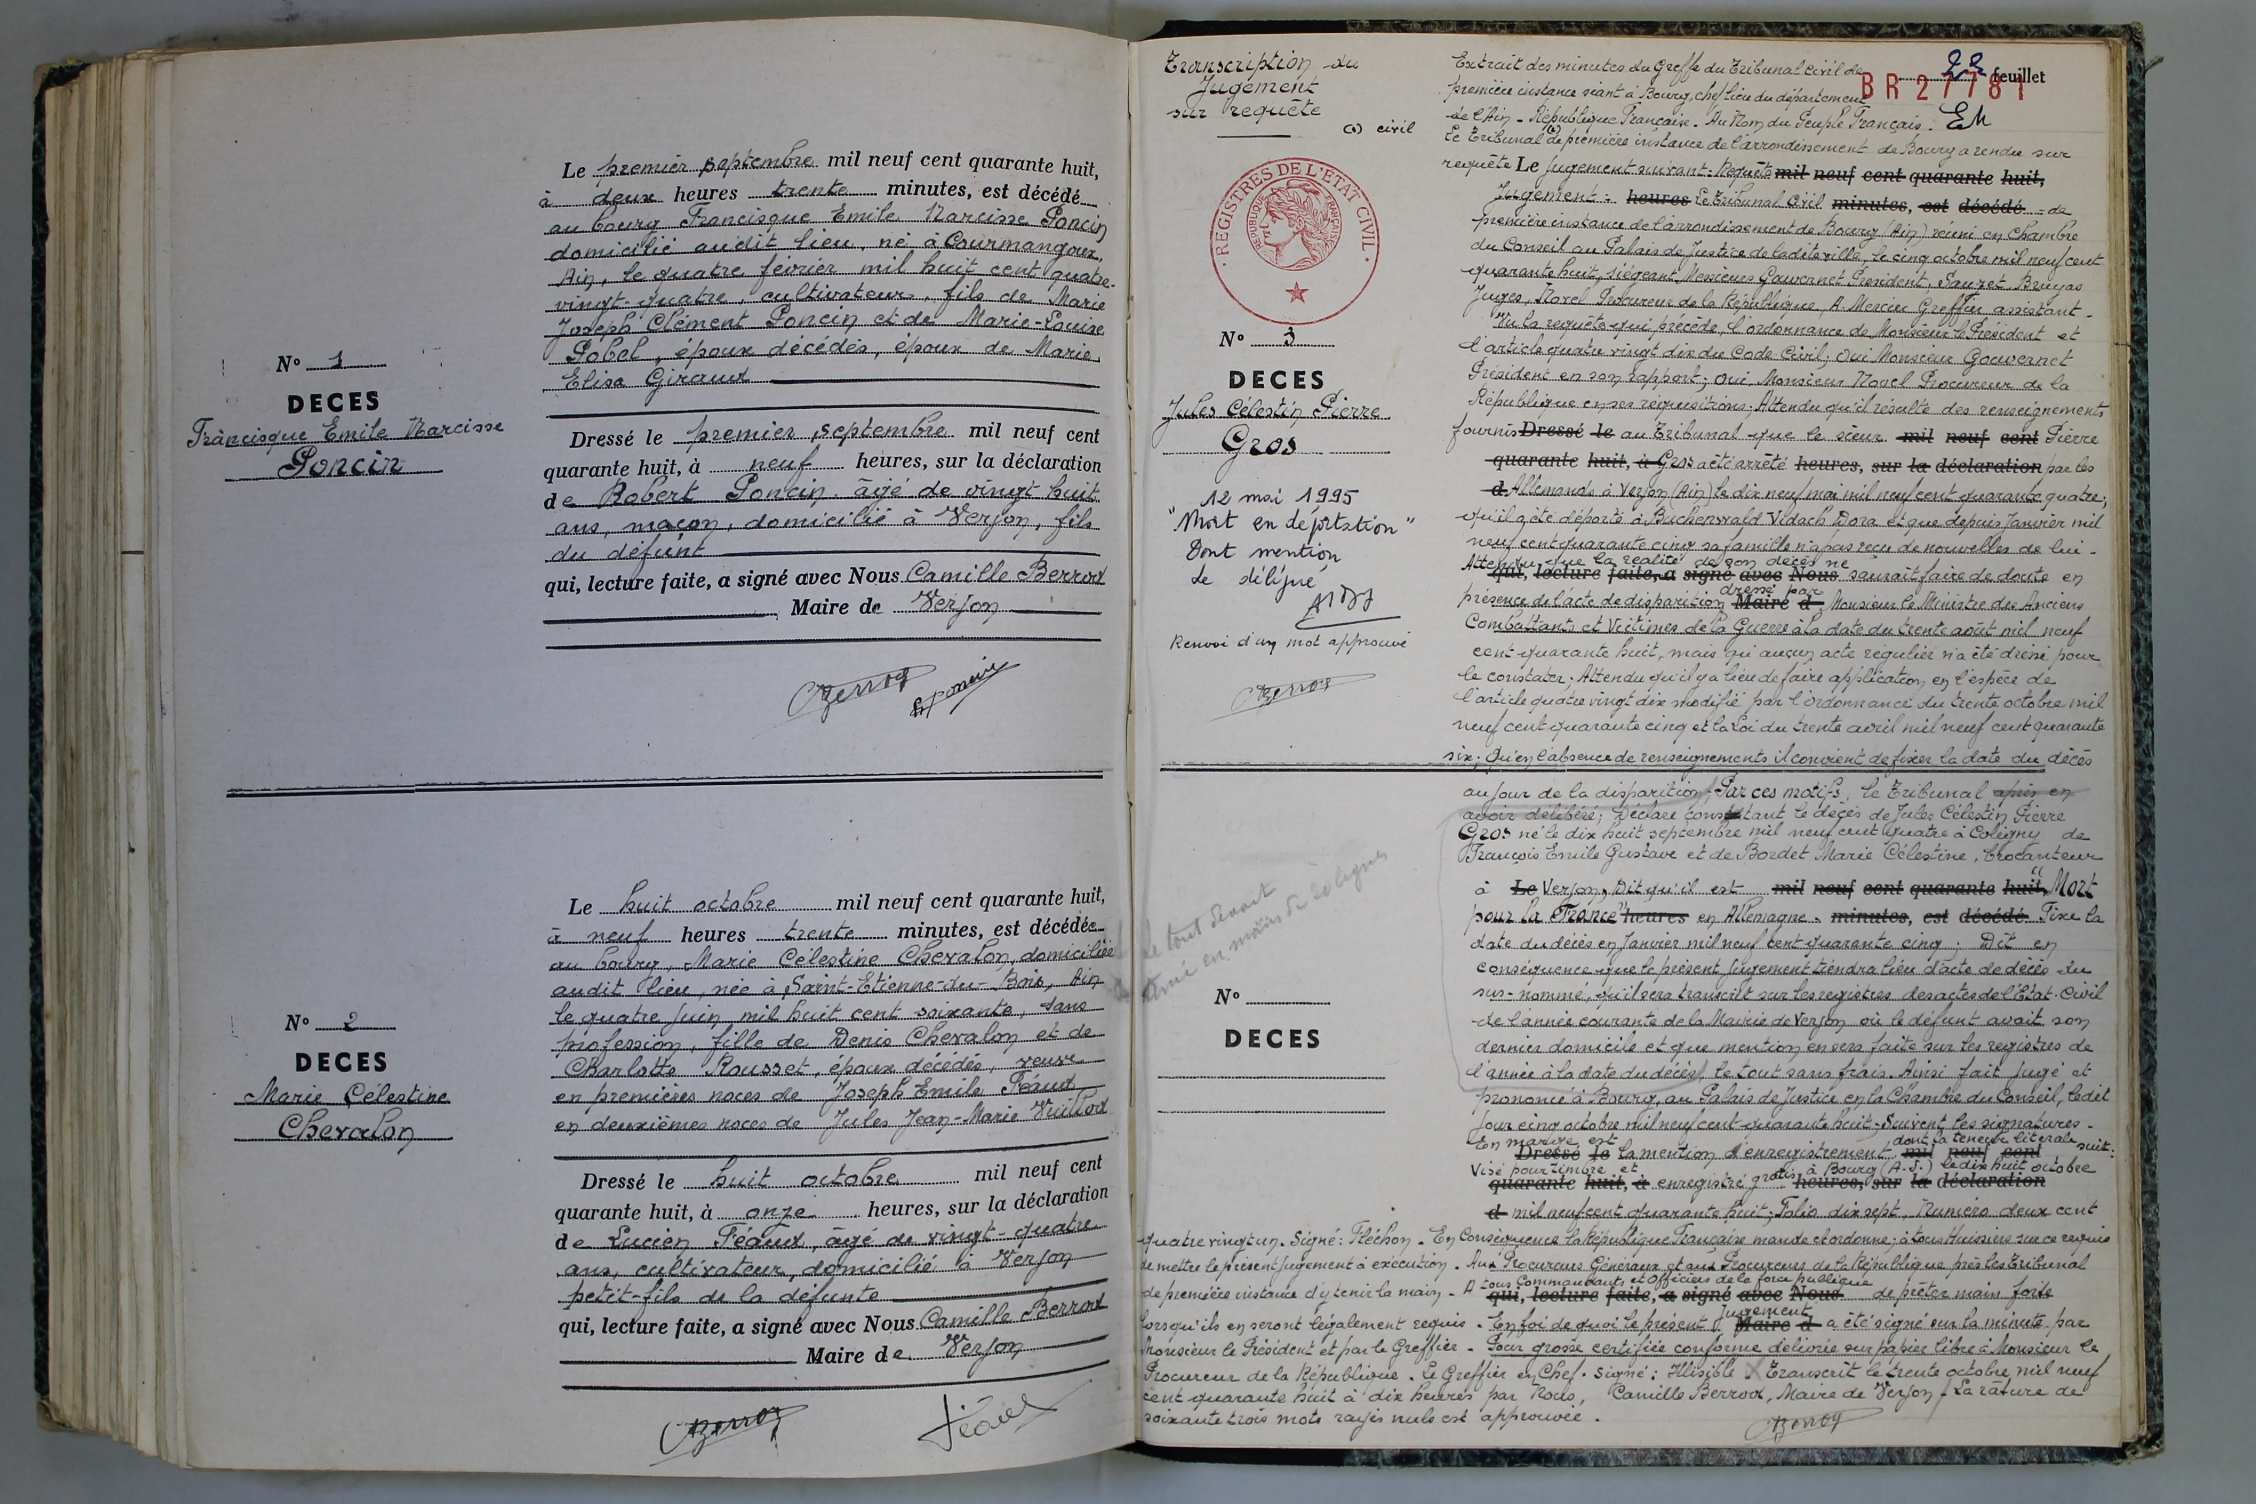 Le premier septembre mil neuf cent quarante huit,
à deux heures trente minutes, est décédé
au bourg Francisque Emile Narcisse Poncin
domicilié audit lieu, né à Courmangoux,
Ain, le quatre février mil huit cent quatre-
vingt-quatre, cultivateur, fils de Marie
Joseph Clément Poncin et de Marie-Louise
Pobel, époux décédés, époux de Marie
Elisa Giraud
N° 1
DECES
Francisque Emile Narcisse
Poncin
Dressé le premier septembre mil neuf cent
quarante huit, à neuf heures, sur la déclaration
de Robert Poncin âgé de vingt huit
ans, maçon, domicilié à Verjon, fils
du défunt
qui, lecture faite, a signé avec Nous Camille Berrod
Maire de Verjon
Le huit octobre mil neuf cent quarante huit,
à neuf heures trente minutes, est décédée
au bourg, Marie Célestine Chevalon, domiciliée
audit lieu, née à Saint-Etienne-du-Bois, Ain
le quatre juin mil huit cent soixante, sans
profession, fille de Denis Chevalon et de
Charlotte Rousset, époux décédés, veuve
en premières noces de Joseph Emile Féaud
en deuxièmes noces de Jules Jean-Marie Vuillod
N° 2
DECES
Marie Célestine
Chevalon
Dressé le huit octobre mil neuf cent
quarante huit, à onze heures, sur la déclaration
de Lucien Féaud, âgé de vingt-quatre
ans, cultivateur, domicilié à Verjon
petit-fils de la défunte
qui, lecture faite, a signé avec Nous Camille Berrod
Maire de Verjon
Transcription du
Jugement
sur requête
(1) civil
REGISTRES DE L'ETAT CIVIL
REPUBLIQUE FRANÇAISE
N° 3
DECES
Jules Célestin Pierre
Gros
12 mai 1995
"Mort en déportation"
Dont mention
Le délégué
Renvoi d'un mot approuvé
Le tout devait
en moins de lignes
N°
DECES
22 feuillet
BR 27781
EM
Extrait des minutes du Greffe du Tribunal civil de
première instance séant à Bourg, chef lieu du département
de l'Ain - République Française. Au Nom du Peuple Français.
Le Tribunal (1) de première instance de l'arrondissement de Bourg a rendu sur
requête Le jugement suivant: Requête mil neuf cent quarante huit,
Jugement: heures Le Tribunal Civil minutes, est décédé de
première instance de l'arrondissement de Bourg (Ain) réuni en chambre
du Conseil au Palais de Justice de ladite ville, le cinq octobre mil neuf cent
quarante huit, siégeant Messieurs Gouvernet Président, Sauzet Bruyas
Juges, Novel Procureur de la République, A. Mercier Greffier assistant.
Vu la requête qui précède, l'ordonnance de Monsieur le Président et
l'article quatre vingt dix du Code Civil; Ouï Monsieur Gouvernet
Président en son rapport; ouï Monsieur Novel Procureur de la
République en ses réquisitions; Attendu qu'il résulte des renseignements
fournis Dressé le au Tribunal que le sieur mil neuf cent Pierre
quarante huit, à Gros a été arrêté heures, sur la déclaration par les
d Allemands à Verjon (Ain) le dix neuf mai mil neuf cent quarante quatre;
qu'il a été déporté à Buchenwald Vidach Dora et que depuis Janvier mil
neuf cent quarante cinq sa famille n'a pas reçu de nouvelles de lui.
Attendu que la réalité de son décès ne
qui, lecture faite, a signé avec Nous saurait faire de doute en
présence de l'acte de disparition dressé par Maire d Monsieur le Ministre des Anciens
Combattants et Victimes de la Guerre à la date du trente août mil neuf
cent quarante huit, mais qu'aucun acte régulier n'a été dressé pour
le constater. Attendu qu'il y a lieu de faire application en l'espèce de
l'article quatre vingt dix modifié par l'ordonnance du trente octobre mil
neuf cent quarante cinq et la Loi du trente avril mil neuf cent quarante
six; Qu'en l'absence de renseignements il convient de fixer la date du décès
au jour de la disparition; Par ces motifs, le Tribunal après en
avoir délibéré; Déclare constant le décès de Jules Célestin Pierre
Gros né le dix huit septembre mil neuf cent quatre à Coligny de
François Emile Gustave et de Bordet Marie Célestine, brocanteur
à Le Verjon, Dit qu'il est mil neuf cent quarante huit, "Mort
pour la France" heures en Allemagne. minutes, est décédé Fixe la
date du décès en Janvier mil neuf cent quarante cinq; Dit en
conséquence que le présent jugement tiendra lieu d'acte de décès du
sus-nommé, qu'il sera transcrit sur les registres des actes de l'Etat-Civil
de l'année courante de la Mairie de Verjon où le défunt avait son
dernier domicile et que mention en sera faite sur les registres de
l'année à la date du décès, le tout sans frais. Ainsi fait jugé et
prononcé à Bourg, au Palais de Justice en la Chambre du Conseil, ledit
jour cinq octobre mil neuf cent quarante huit; Suivent les signatures.
En marge est Dressé le la mention d'enregistrement dont la teneur litérale mil neuf cent suit:
Visé pour timbre et quarante huit, à enregistré gratis à Bourg (A.J.) le dix huit octobre heures, sur la déclaration
d mil neuf cent quarante huit; Folio dix sept, Numéro deux cent
quatre vingt un. Signé: Fléchon. En Conséquence la République Française mande et ordonne: à tous Huissiers sur ce requis
de mettre le présent jugement à exécution. Aux Procureurs Généraux et aux Procureurs de la République près les Tribunal
de première instance d'y tenir la main. A tous Commandants et Officiers de la force publique qui, lecture faite, a signé avec Nous de prêter main forte
lorsqu'ils en seront légalement requis. En foi de quoi le présent Jugement Maire d a été signé sur la minute par
Monsieur le Président et par le Greffier. Pour grosse certifiée conforme délivrée sur papier libre à Monsieur le
Procureur de la République. Le Greffier en Chef. Signé: Illisible. Transcrit le trente octobre mil neuf
cent quarante huit à dix heures par Nous, Camille Berrod, Maire de Verjon. La rature de
soixante trois mots rayés nuls est approuvée.